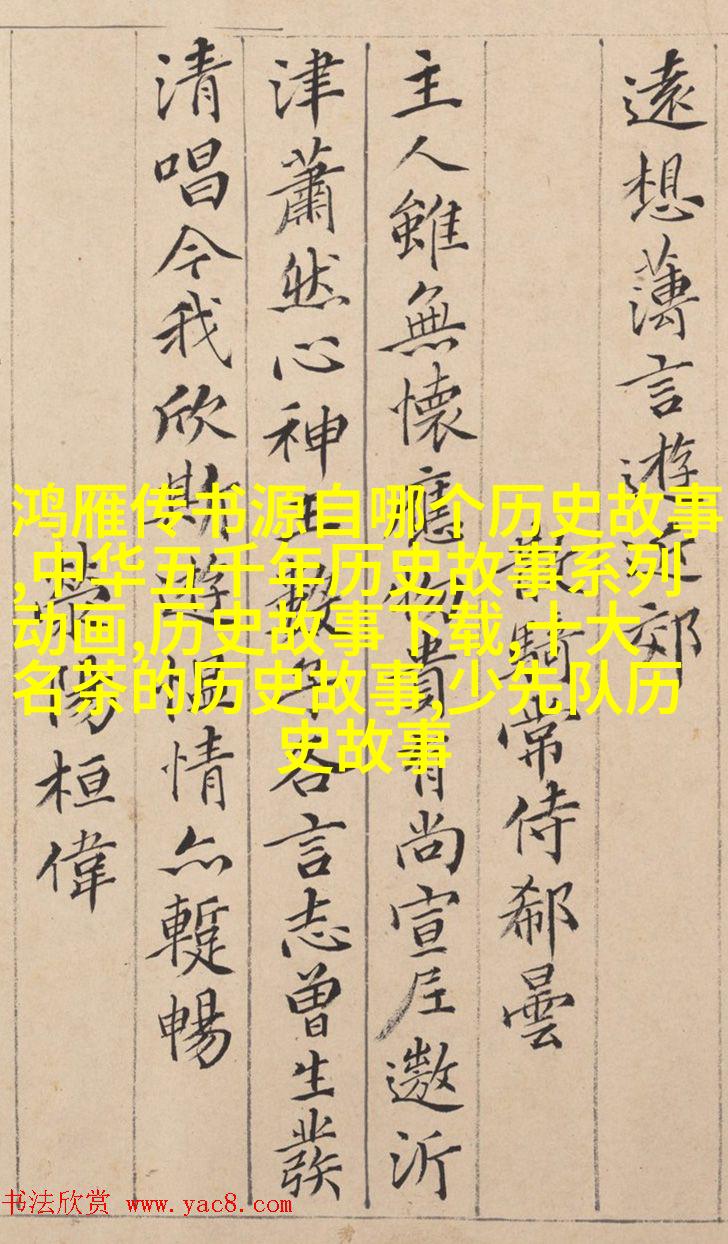 遠想薄言遊近郊
散騎常侍郗曇
主人雖無懷應物貴有尚宣尼遨沂
津蕭然心神王數子各言志曾生發
清唱今我欣斯遊慍情亦蹔暢
滎陽桓偉
鸿雁传书源自哪个历史故事
,中华五千年历史故事系列
动画,历史故事下载,十大
名茶的历史故事,少先队历
史故事
书法欣赏 www.yac8.com